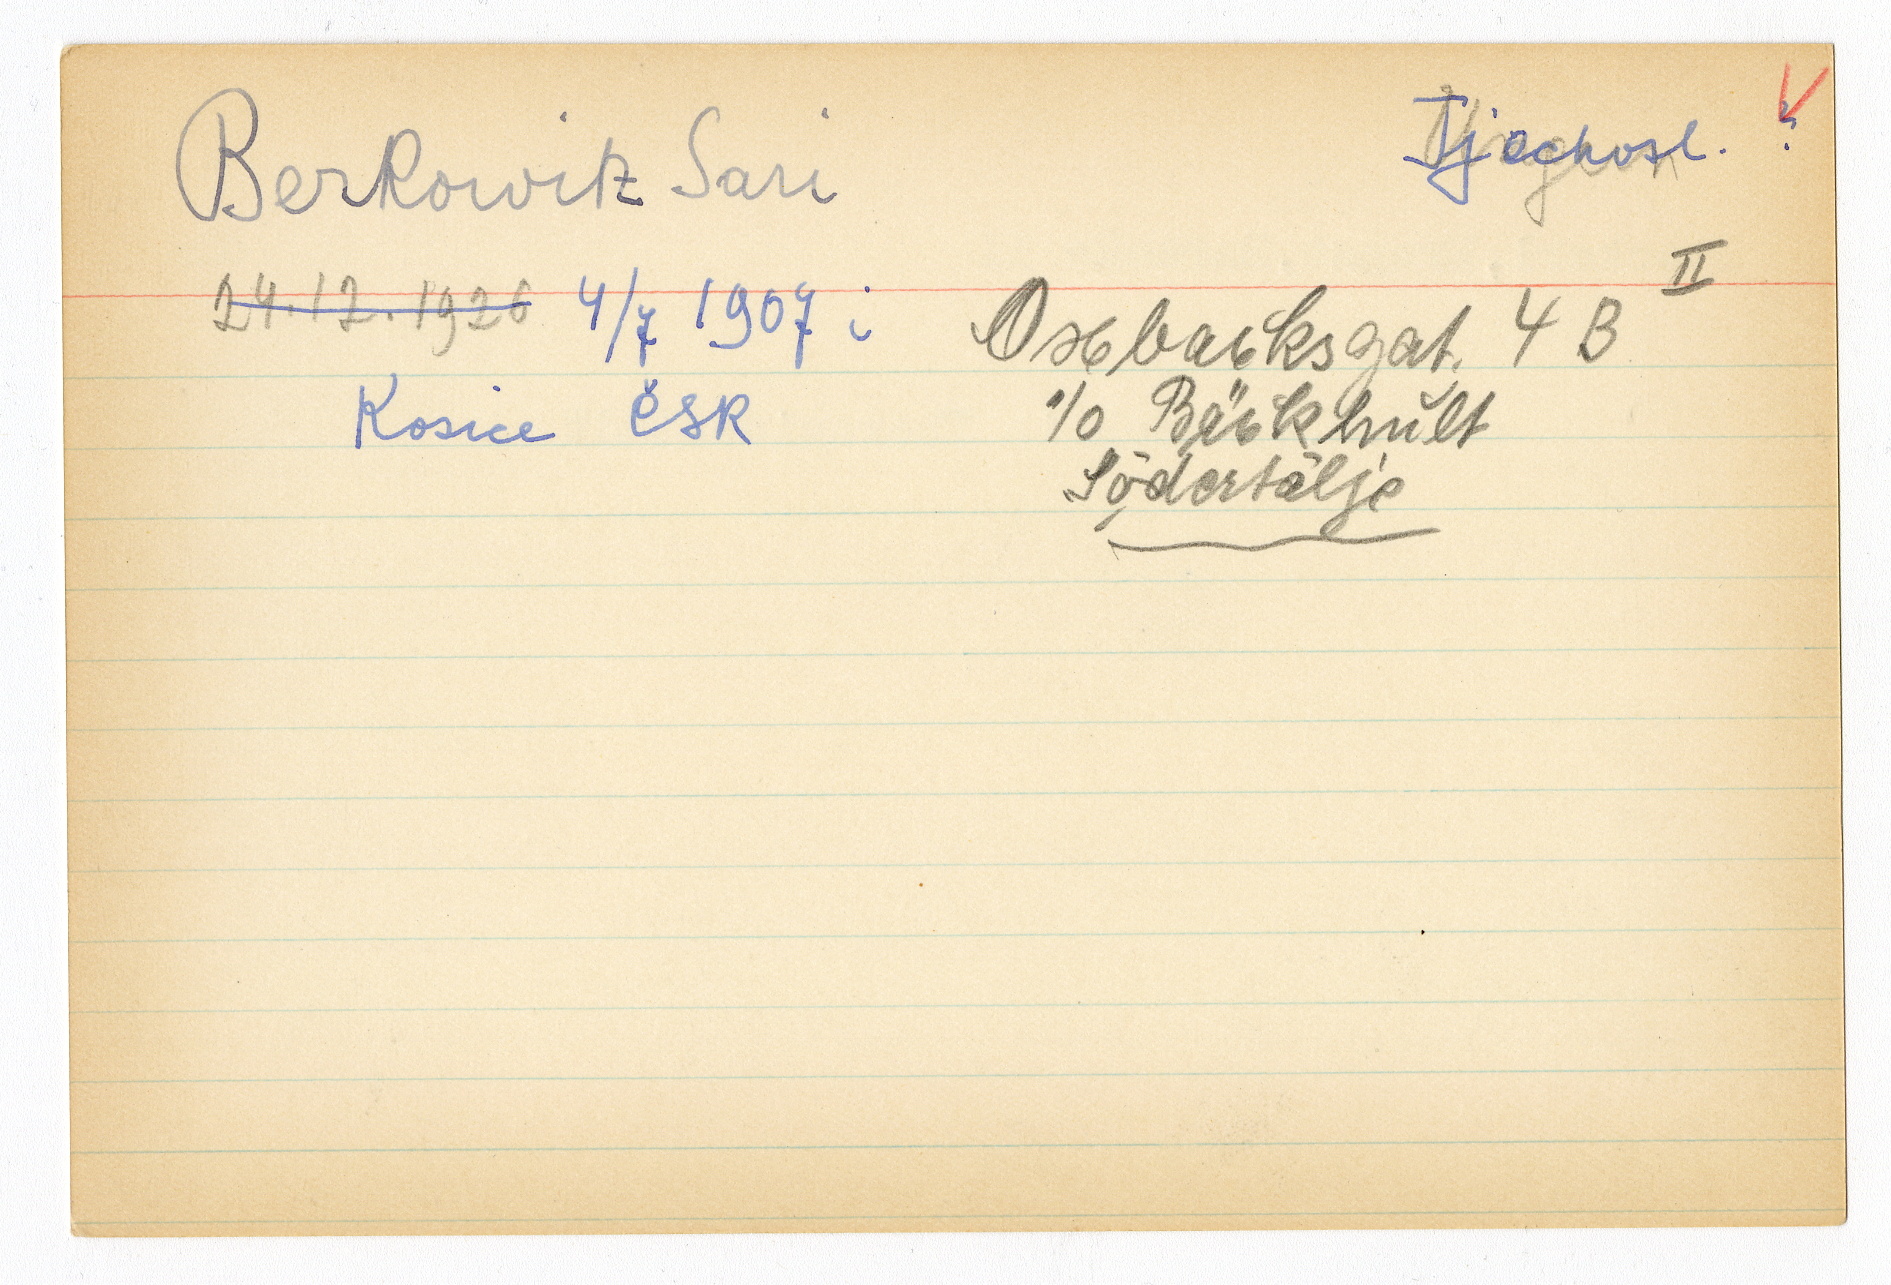 Berkowitz Sari
Tjeckosl. ?
24.12.1926 4/7 1907 i
Kosice ČSR
Oxbacksgat. 4 B II
c/o Bäckhult
Södertälje